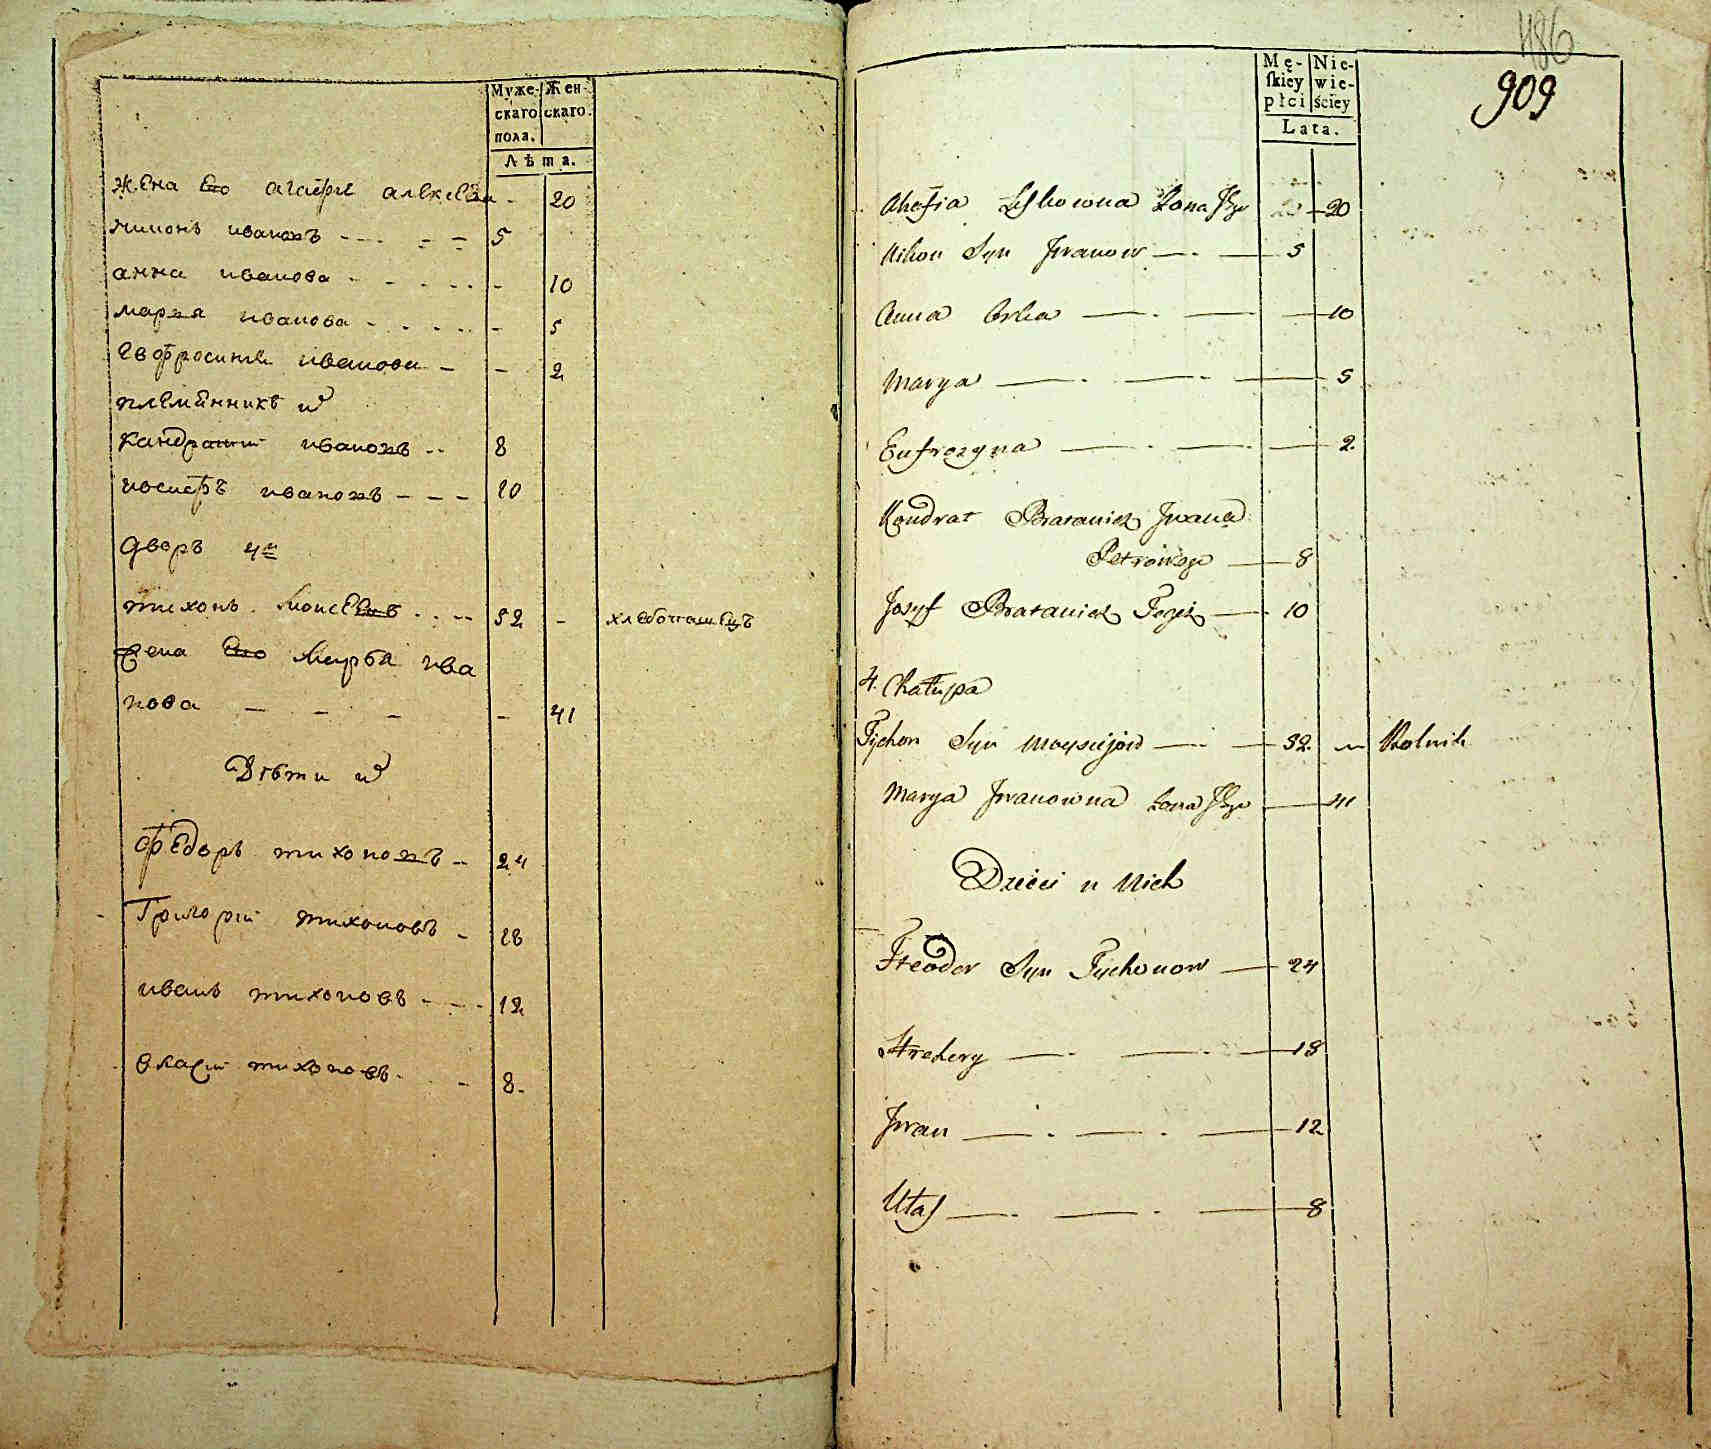 Муже-
скаго
пола.
Жен-
скаго.
Лѣта.
Жена Его агафіе алексѣв - 20
никонъ ивановъ - 5
анна иванова - 10
мария иванова - 5
евфросиние иванова - 2
племѣнники и
кандратий ивановъ 8
иосифъ ивановъ 10
дворъ 4й
тихонъ Моисеевъ 52 - хлебопашецъ
жена Его Марѳа ива
нова - 41
Дѣти и
федоръ тихоновъ 24
Григорій тихоновъ 18
иванъ тихоновъ 12
власій тихоновъ 8
486
909
Mę-
skiey
płci
Nie-
wie-
ściey
Lata.
Ahafia Zona Jego 20
Nikon Syn Iwanow 5
Anna Corka 10
Marya 5
Eufrozyna 2
Kondrat Bratanick Iwana
Petrowego 8
Josyf Bratanick Tegoż 10
4. Chałupa
Tychon Syn Moysiejow 52 Rolnik
Marya Iwanowna Zona Jego 41
Dzieci u Nich
Fteodor Syn Tychonow 24
Hrehory 18
Iwan 12
Ułas 8